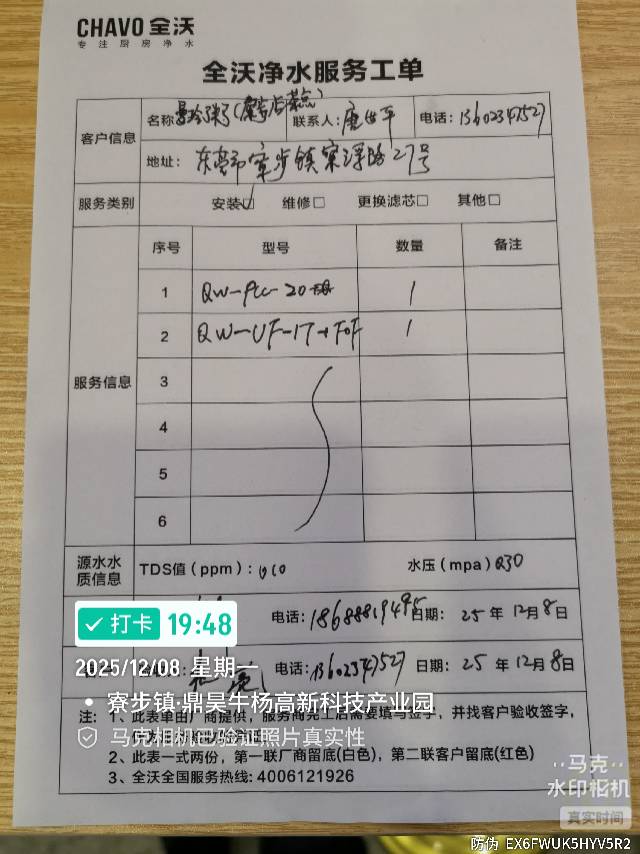 CHAVO 全沃
专注厨房净水
全沃净水服务工单
客户信息
名称 联系人: 电话: 13602347527
地址: 东莞市寮步镇 27号
服务类别 安装☑ 维修□ 更换滤芯□ 其他□
服务信息
序号 型号 数量 备注
1 QW-PCC-20 1
2 QW-UF-1T+FOF 1
3
4
5
6
源水水质信息
TDS值(ppm): 水压(mpa) 030
电话: 18688819495 日期: 25 年 12月8日
电话: 13602347527 日期: 25 年 12月8日
打卡 19:48
2025/12/08 星期一
寮步镇·鼎昊牛杨高新科技产业园
马克相机已验证照片真实性
注: 1、此表单由厂商提供,服务商完工后需要填写签字,并找客户验收签字,
2、此表一式两份,第一联厂商留底(白色),第二联客户留底(红色)
3、全沃全国服务热线: 4006121926
马克
水印相机
真实时间
防伪 EX6FWUK5HYV5R2